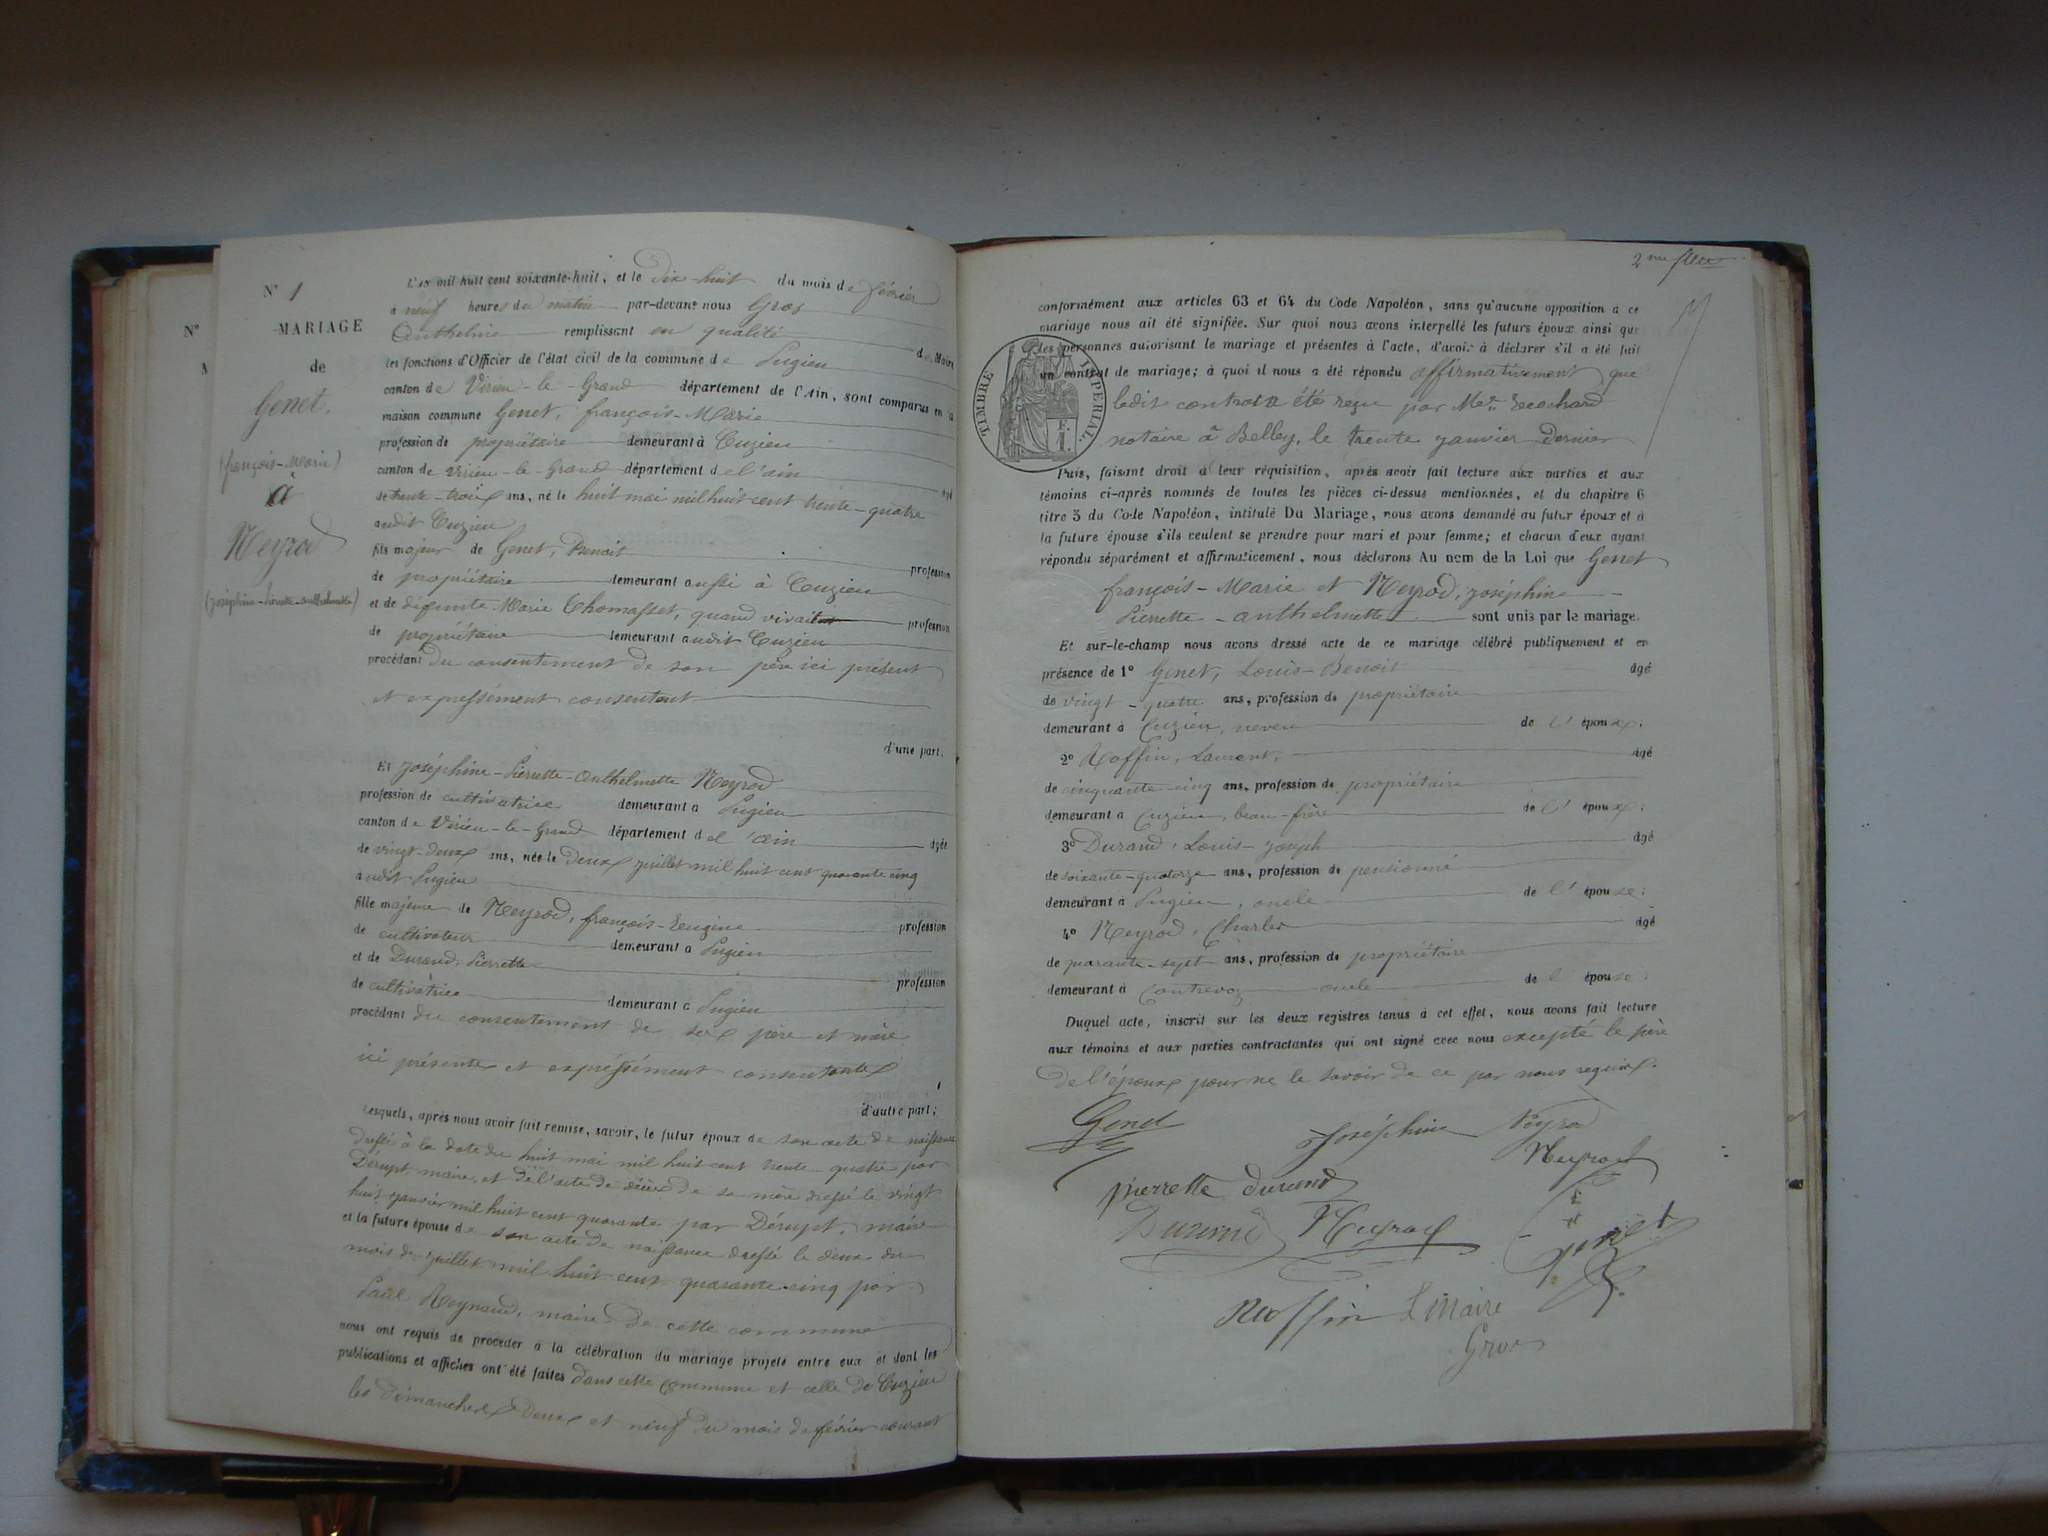 N° 1
MARIAGE
de
Genet,
(françois-Marie)
à
Neyrod
(Joséphine-Pierrette-Anthelmette)
N°
L'AN mil huit cent soixante-huit, et le Dix-huit du mois de février
à neuf heures du matin par-devant nous Gros
Anthelme remplissant en qualité de Maire
les fonctions d'Officier de l'état civil de la commune de Pugieu
canton de Virieu-le-Grand département de l'Ain, sont comparus en la
maison commune Genet, françois-Marie
profession de propriétaire demeurant à Cuzieu
canton de Virieu-le-Grand département de l'ain âgé
de trente-trois ans, né le huit mai mil huit cent trente-quatre
audit Cuzieu
fils majeur de Genet, Benoit profession
de propriétaire demeurant aussi à Cuzieu
et de défunte Marie Thomasset, quand vivait profession
de propriétaire demeurant audit Cuzieu
procédant du consentement de son père ici présent
et expressément consentant
d'une part.
Et Joséphine-Pierrette-Anthelmette Neyrod
profession de cultivatrice demeurant à Pugieu
canton de Virieu-le-Grand département de l'ain âgée
de vingt-deux ans, née le deux juillet mil huit cent quarante cinq
audit Pugieu
fille majeure de Neyrod, françois-Eugène profession
de cultivateur demeurant à Pugieu
et de Durand, Pierrette profession
de cultivatrice demeurant à Pugieu
procédant du consentement de ses père et mère
ici présents et expressément consentants
d'autre part;
Lesquels, après nous avoir fait remise, savoir, le futur époux de son acte de naissance
dressé à la date du huit mai mil huit cent trente-quatre par
Dérupt maire, et de l'acte de décès de sa mère dressé le vingt
huit janvier mil huit cent quarante par Dérupt, maire
et la future épouse de son acte de naissance dressé le deux du
mois de juillet mil huit cent quarante-cinq par
Paul Reynaud, maire de cette commune
nous ont requis de procéder à la célébration du mariage projeté entre eux et dont les
publications et affiches ont été faites dans cette commune et celle de Cuzieu
les dimanches deux et neuf du mois de février courant
2me
conformément aux articles 63 et 64 du Code Napoléon, sans qu'aucune opposition à ce
mariage nous ait été signifiée. Sur quoi nous avons interpellé les futurs époux ainsi que
les personnes autorisant le mariage et présentes à l'acte, d'avoir à déclarer s'il a été fait
un contrat de mariage; à quoi il nous a été répondu affirmativement que
ledit contrat a été reçu par Me
notaire à Belley, le trente janvier dernier
TIMBRE IMPERIAL.
F.
1.
Puis, faisant droit à leur réquisition, après avoir fait lecture aux parties et aux
témoins ci-après nommés de toutes les pièces ci-dessus mentionnées, et du chapitre 6
titre 5 du Code Napoléon, intitulé Du Mariage, nous avons demandé au futur époux et à
la future épouse s'ils veulent se prendre pour mari et pour femme; et chacun d'eux ayant
répondu séparément et affirmativement, nous déclarons Au nom de la Loi que Genet
françois-Marie et Neyrod, Joséphine
Pierrette-Anthelmette sont unis par le mariage.
Et sur-le-champ nous avons dressé acte de ce mariage célébré publiquement et en
présence de 1° Genet, Louis-Benoit âgé
de vingt-quatre ans, profession de propriétaire
demeurant à Cuzieu, neveu de l'époux;
2° Roffin, Laurent, âgé
de cinquante-cinq ans, profession de propriétaire
demeurant à Cuzieu, beau-frère de l'époux;
3° Durand, Louis-Joseph âgé
de soixante-quatorze ans, profession de pensionné
demeurant à Pugieu, oncle de l'épouse;
4° Neyrod, Charles âgé
de quarante-sept ans, profession de propriétaire
demeurant à Contrevoz oncle de l'épouse:
Duquel acte, inscrit sur les deux registres tenus à cet effet, nous avons fait lecture
aux témoins et aux parties contractantes qui ont signé avec nous excepté le père
de l'époux pour ne le savoir de ce par nous requis.
Genet Joséphine Neyrod
Neyrod
pierrette durand
Durand Neyrod Genet
Roffin L Maire
Gros